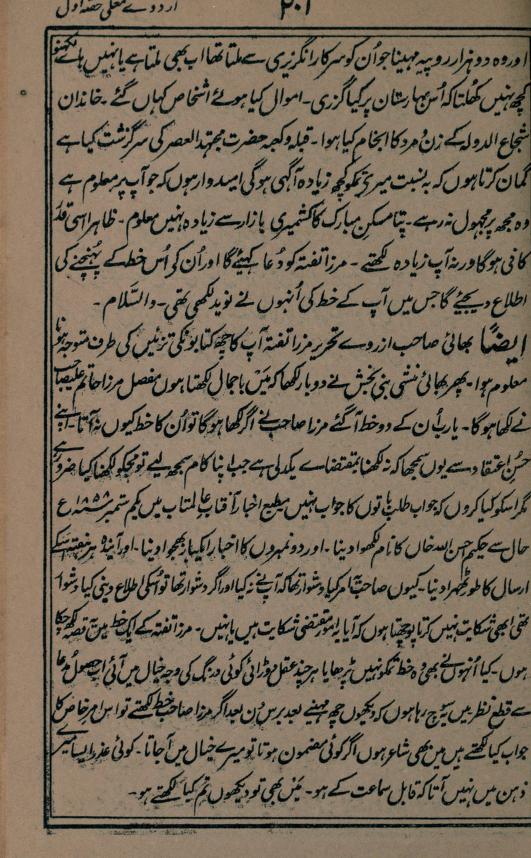 اردوے معلی حصہ اول
۲۰۱
اور وہ دو ہزار روپیہ مہینا جو اُن کو سرکار انگریزی سے ملتا تھا اب بھی ملتا ہے یا نہیں ہائے لکھنؤ
کچھ نہیں کھلتا کہ اُس بہارستان پر کیا گزری۔ اموال کیا ہوئے اشخاص کہاں گئے۔ خاندان
شجاع الدولہ کے زن و مرد کا انجام کیا ہوا۔ قبلہ و کعبہ حضرت مجتہد العصر کی سرگزشت کیا ہے
گمان کرتا ہوں کہ بہ نسبت میرے تمکو کچھ زیادہ آگہی ہوگی امیدوار ہوں کہ جو آپ پر معلوم ہے
وہ مجھ پر مجہول نہ رہے۔ پتا مسکن مبارک کا کشمیری بازار سے زیادہ نہیں معلوم۔ ظاہرا اسی قدر
کافی ہوگا ورنہ آپ زیادہ لکھتے۔ مرزا تفتہ کو دُعا کہیئے گا اور اُن کو اُس خط کے پہنچنے کی
اطلاع دیجئے گا جس میں آپ کے خط کی اُنہوں نے نوید لکھی تھی۔ والسّلام۔
ایضاً بھائی صاحب از روے تحریر مرزا تفتہ آپ کا چھ کتابوں کی تزئین کی طرف متوجہ ہونا
معلوم ہوا۔ پھر بھائی منشی نبی بخش نے دوبار لکھا کہ میں باجمال لکھتا ہوں مفصل مرزا حاتم علیصاحب
نے لکھا ہوگا۔ یارب اُن کے دو خط آگئے مرزا صاحب نے اگر لکھا ہوگا تو اُن کا خط کیوں نہ آتا۔ اپنے
حُسن اعتقاد سے یوں سمجھا کہ نہ لکھنا بمقتضاے یکدلی ہے جب اپنا کام سمجھ لیے تو مجکو لکھنا کیا ضرور ہے
مگر اسکو کیا کروں کہ جواب طلب باتوں کا جواب نہیں مطبع اخبار آفتاب عالمتاب میں یکم ستمبر ۱۸۵۸ء
حال سے حکیم احسن اللہ خاں کا نام لکھوا دینا۔ اور دو نمبروں کا اخبار ایکبار بھجوا دینا۔ اور آیندہ ہر ہفتے اسکے
ارسال کا طور ٹھہرا دینا۔ کیوں صاحب یہ امر کیا دشوار تھا کہ آپنے نہ کیا اور اگر دشوار تھا تو اسکی اطلاع دینی کیا دشوار
تھی ابھی شکایت نہیں کرتا پوچھتا ہوں کہ آیا یہ امور مقتضی شکایت ہیں یا نہیں۔ مرزا تفتہ کے ایک خط میں یہ قصہ لکھ چکا
ہوں۔ کیا اُنہوں نے بھی وہ خط تمکو نہیں پڑھایا ہر چند عقل دوڑائی کوئی درنگ کی وجہ خیال میں نہ آئی اب حصول مدعا
سے قطع نظر میں یہ سوچ رہا ہوں کہ دیکھوں چھ مہینے بعد برس دن بعد اگر مرزا صاحب خط لکھتے تو اس امر خاص کا
جواب کیا لکھتے ہیں میں بھی شاعر ہوں اگر کوئی مضمون ہوتا تو میرے خیال میں آجاتا۔ کوئی عذر ایسا میرے
ذہن میں نہیں آتا کہ قابل سماعت کے ہو۔ میں بھی تو دیکھوں تم کیا لکھتے ہو۔